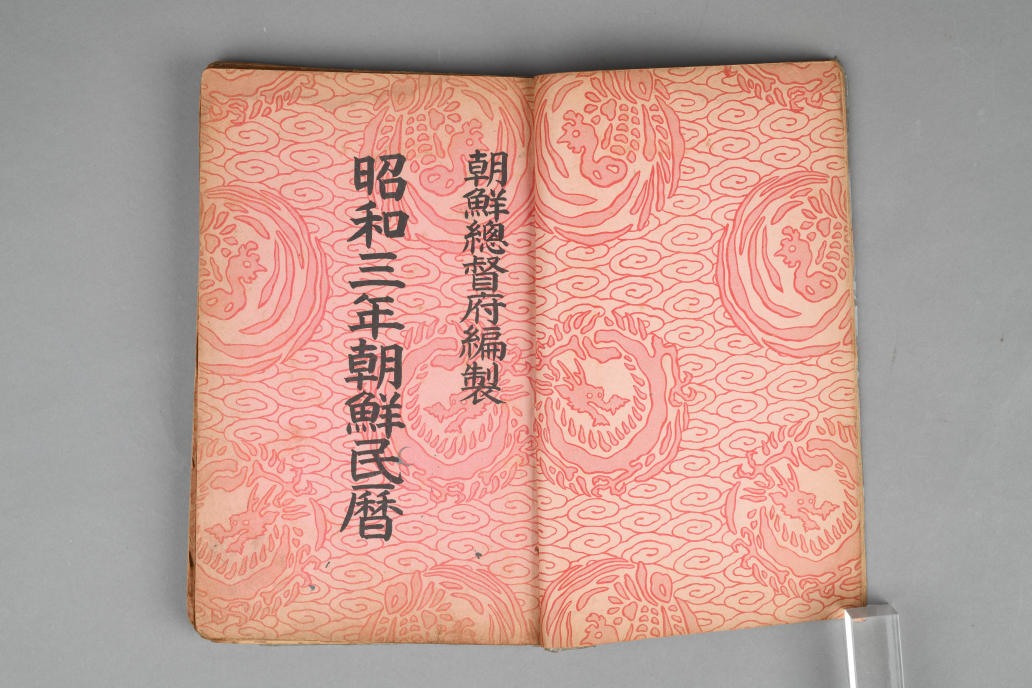 朝鮮總督府編製
昭和三年朝鮮民曆